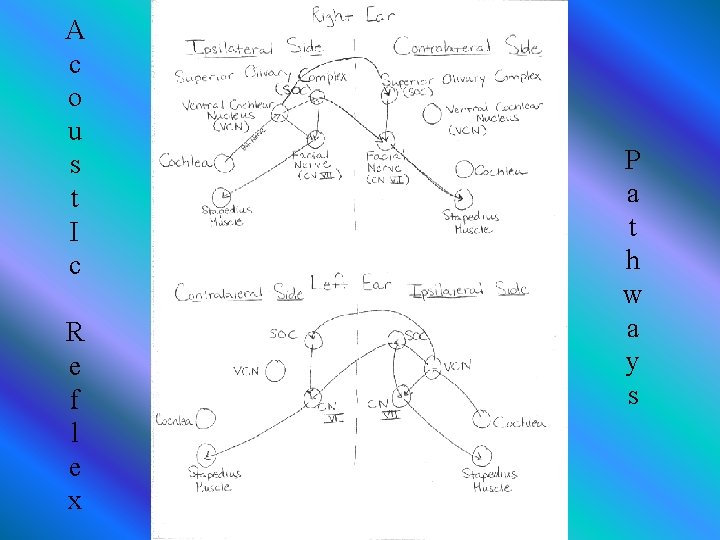 Acoust Ic
Reflex
Pathways
Right Ear
Ipsilateral Side
Contralateral Side
Superior Olivary Complex
(SOC)
Superior Olivary Complex
(SOC)
Ventral Cochlear
Nucleus
(VCN)
Ventral Cochlear
Nucleus
(VCN)
Cochlea
Facial
Nerve
(CN VII)
Facial
Nerve
(CN VI)
Cochlea
Stapedius
Muscle
Stapedius
Muscle
Left Ear
Contralateral Side
Ipsilateral Side
SOC
SOC
VCN
VCN
CN
VI
CN
VII
Cochlea
Cochlea
Stapedius
Muscle
Stapedius
Muscle